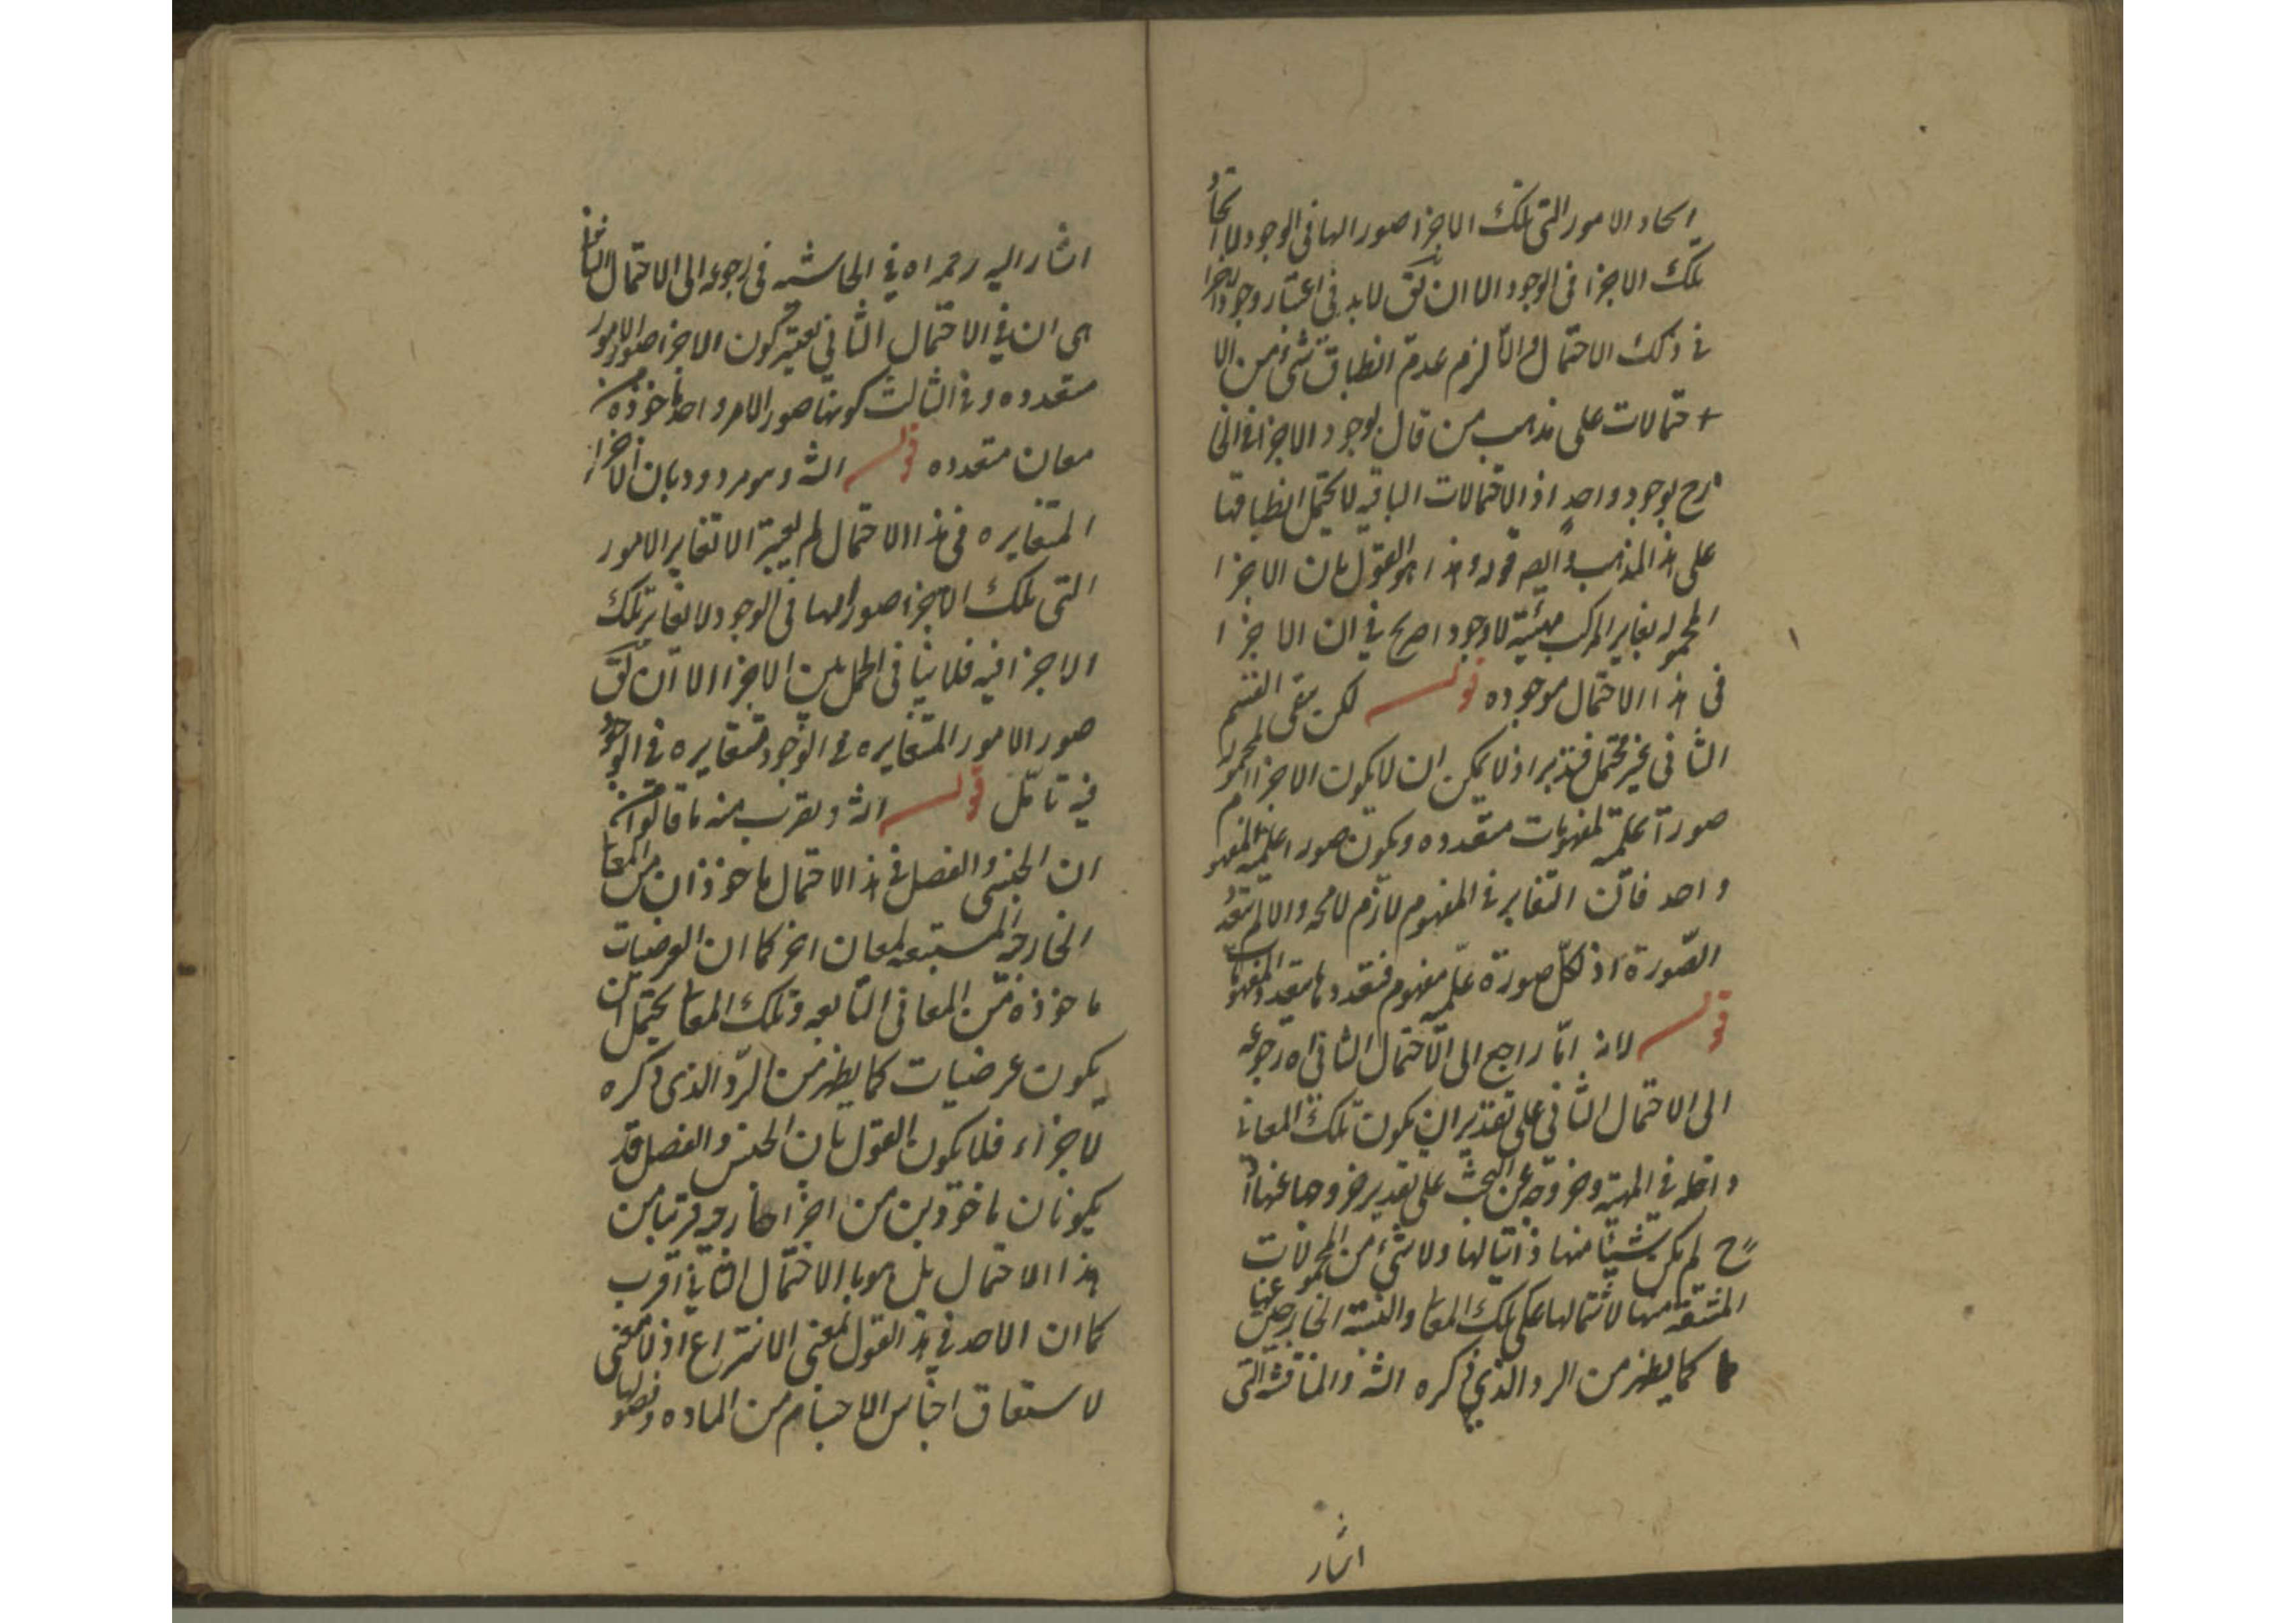 اتحاد الامور التى تلك الاجزا صور الها فى الوجود لا اتحاد
تلك الاجزا فى الوجود الا ان يق لا بد فى اعتبار وجود الاجزا
فى ذلك الاحتمال والا لزم عدم انطباق شئ من الا
حتمالات على مذهب من قال بوجود الاجزا فى الخا
رج بوجود واحد اذ الاحتمالات الباقيه لا يحتمل انطباقها
على هذا المذهب وايضا قوله وهذا هو القول بان الاجزا
المحموله يغاير المركب مهيئة لا وجودا صريح فى ان الاجزا
فى هذا الاحتمال موجوده قوله لكن بقى القسم
الثانى غير محتمل فتدبر اذ لا يمكن ان لا يكون الاجزا المحموله
صورا علمية لمفهومات متعدده ويكون صورا علمية لمفهوم
واحد فان التغاير فى المفهوم لازم لا محه والا لم يتعدد
الصورة اذ لكل صورة علمية مفهوم فتعددها بتعدد المفهومات
قوله لانه اما راجع الى الاحتمال الثانى اه رجوعه
الى الاحتمال الثانى على تقدير ان يكون تلك المعانى
داخله فى المهية وخروجه عن البحث على تقدير خروجها عنها اذ
ح لم يكن شيئا منها ذاتيا لها ولا شئ من المحمولات
المشتقه منها لاشتمالها على تلك المعانى والنسبة الخارجين عنها
كما يظهر من الرد الذى ذكره الشه والمناقشه التى
اشار
اشار اليه رحمه اه فى الحاشيه فى رجوعه الى الاحتمال الثانى
هى ان فى الاحتمال الثانى يعتبر كون الاجزا صور الامور
متعدده وفى الثالث كونها صورا لامر واحد ماخوذه من
معان متعدده قوله الشه وهو مردود بان الاجزا
المتغايره فى هذا الاحتمال لم يعتبر الا تغاير الامور
التى تلك الاجزا صور الها فى الوجود لا تغاير تلك
الاجزا فيه فلا ينافى الحمل بين الاجزا الا ان يق
صور الامور المتغايره فى الوجود متغايره فى الوجود
فيه تامل قوله الشه ويقرب منه ما قالوا من
ان الجنس والفصل فى هذا الاحتمال ماخوذان من المعانى
الخارجه المستتبعه لمعان اخر كما ان العرضيات
ماخوذة من المعانى التابعه وتلك المعانى يحتمل ان
يكون عرضيات كما يظهر من الرد الذى ذكره
لاجزاء فلا يكون القول بان الجنس والفصل قد
يكونان ماخوذين من اجزا خارجه قريبا من
هذا الاحتمال بل هو با الاحتمال الثانى اقرب
كما ان الاخذ فى هذا القول بمعنى الانتزاع اذ لا معنى
لاشتقاق اجناس الاجسام من الماده وفصولها